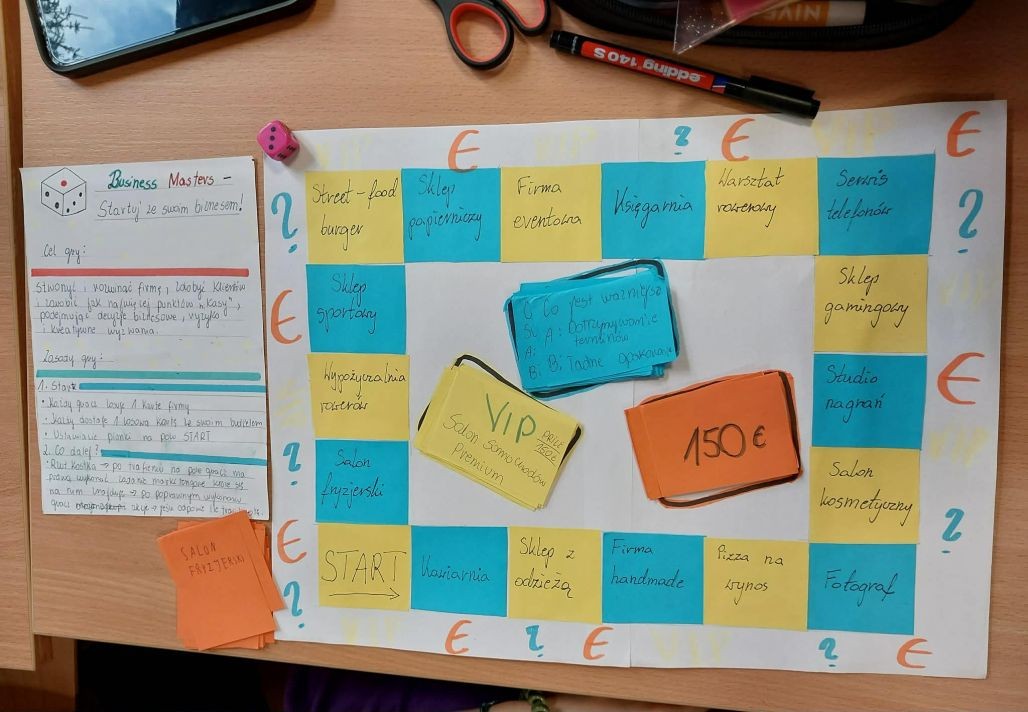 NIVE
edding 140 S
Business Masters -
Startuj ze swoim biznesem!
Cel gry:
Stworzyć i rozwinąć firmę, zdobyć klientów
i zarobić jak najwięcej punktów „Kasy",
podejmując decyzje biznesowe, ryzyko
i kreatywne wyzwania.
Zasady gry:
1. Start
• Każdy gracz losuje 1 kartę firmy
• Każdy dostaje 1 losową kartę ze swoim budżetem
• Ustawianie pionki na pole START
2. Co dalej?
• Rzut kostką → po trafieniu na pole gracz ma
SALON
FRYZJERSKI
€ ? € VIP €
? ?
Street-food
burger
Sklep
papierniczy
Firma
eventowa
Księgarnia
Warsztat
rowerowy
Serwis
telefonów
€
Sklep
sportowy
Sklep
gamingowy
Wypożyczalnia
rowerów
Studio
nagrań
€
?
Salon
fryzjerski
Salon
kosmetyczny
?
€
?
START
Kawiarnia
Sklep z
odzieżą
Firma
handmade
Pizza na
wynos
Fotograf
VIP € ? € VIP ? €
Co jest ważniejsze
A: Dotrzymywanie
terminów
B: Ładne opakowanie
VIP
Salon samochodów
premium
150€
150€